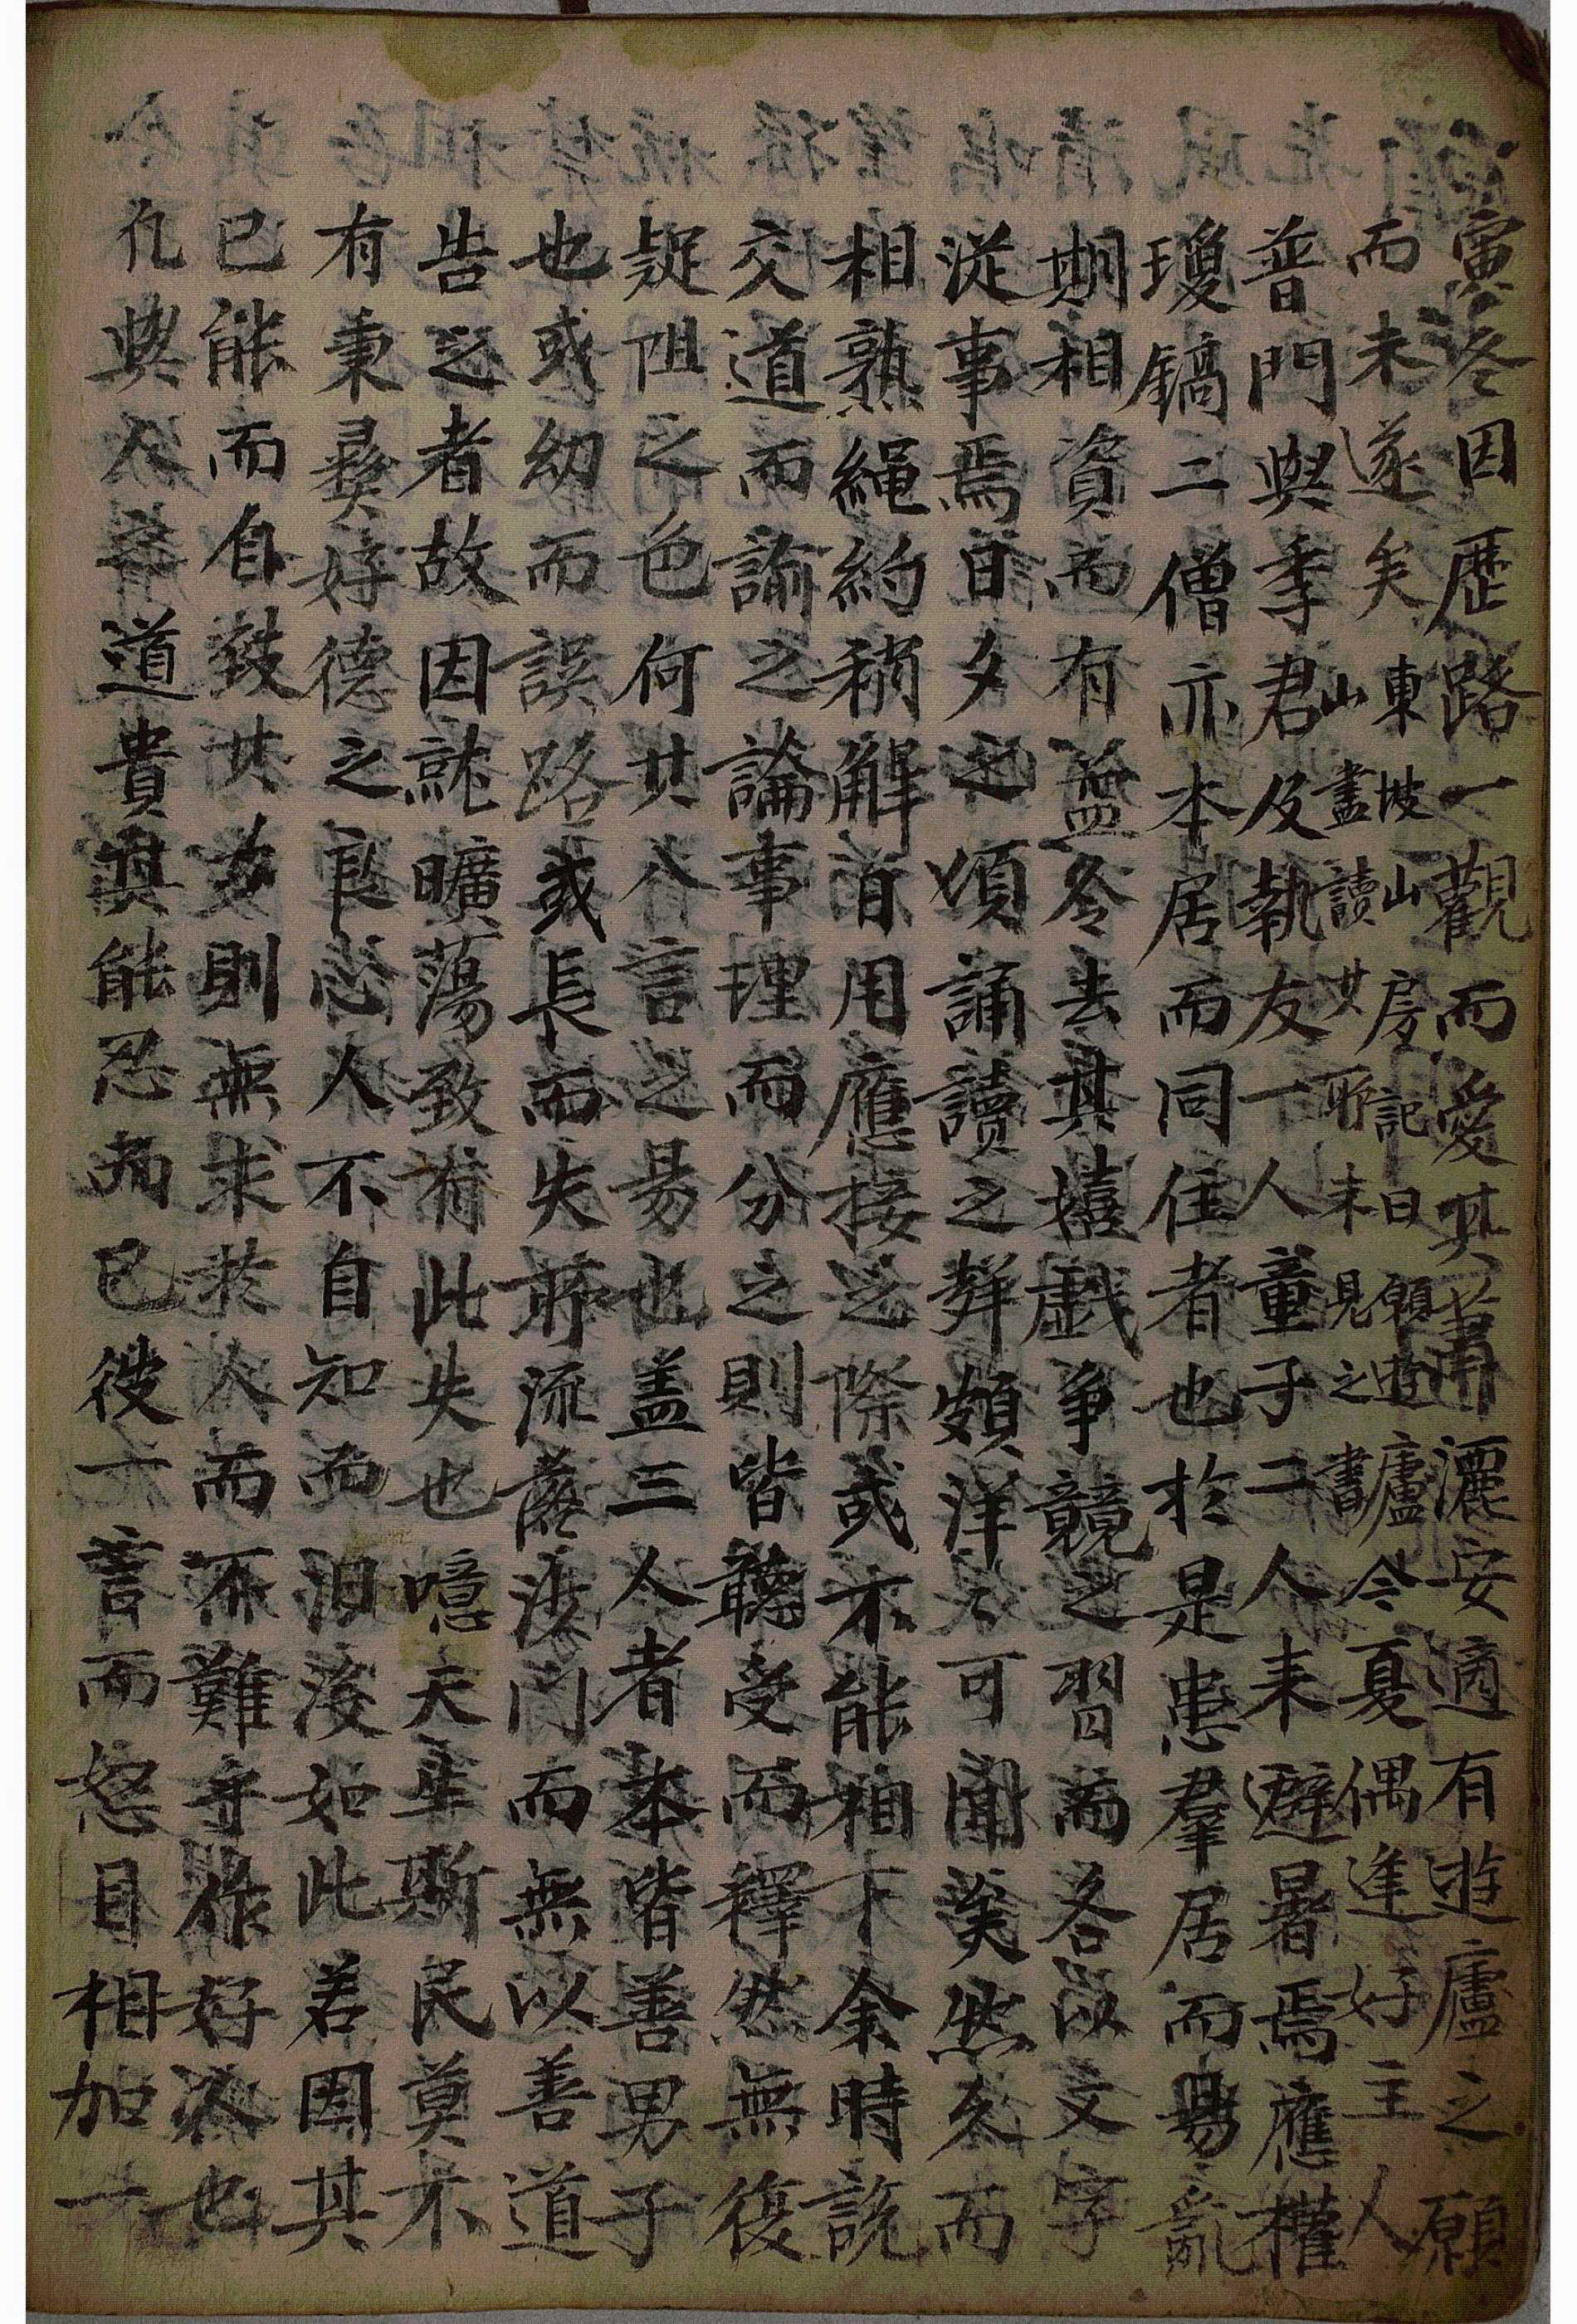 寅冬因歷路一觀而愛其蕭灑安適有遊廬之願
而未遂矣東坡山房記曰願遊廬
山盡讀其所未見之書今夏偶逢好主人
普門與季君及執友一人童子二人來避暑焉應權
瓊鎬二僧亦本居而同住者也於是患羣居而易亂
期相資而有益令去其嬉戱爭競之習而各以文字
從事焉日夕之頃誦讀之聲頗洋々可聞矣然久而
相熟繩約稍解日用應接之際或不能相下余時說
交道而諭之論事理而分之則皆聽受而釋然無復
疑阻之色何其入言之易也盖三人者本皆善男子
也或幼而誤路或長而失所流落沙門而無以善道
告之者故因就曠蕩致有此失也噫天生斯民莫不
有秉彜好德之良心人不自知而汨沒如此若因其
已能而自致其方則無求於人而不難乎作好人也
凡與人交道貴其能忍而已彼一言而怒目相加一